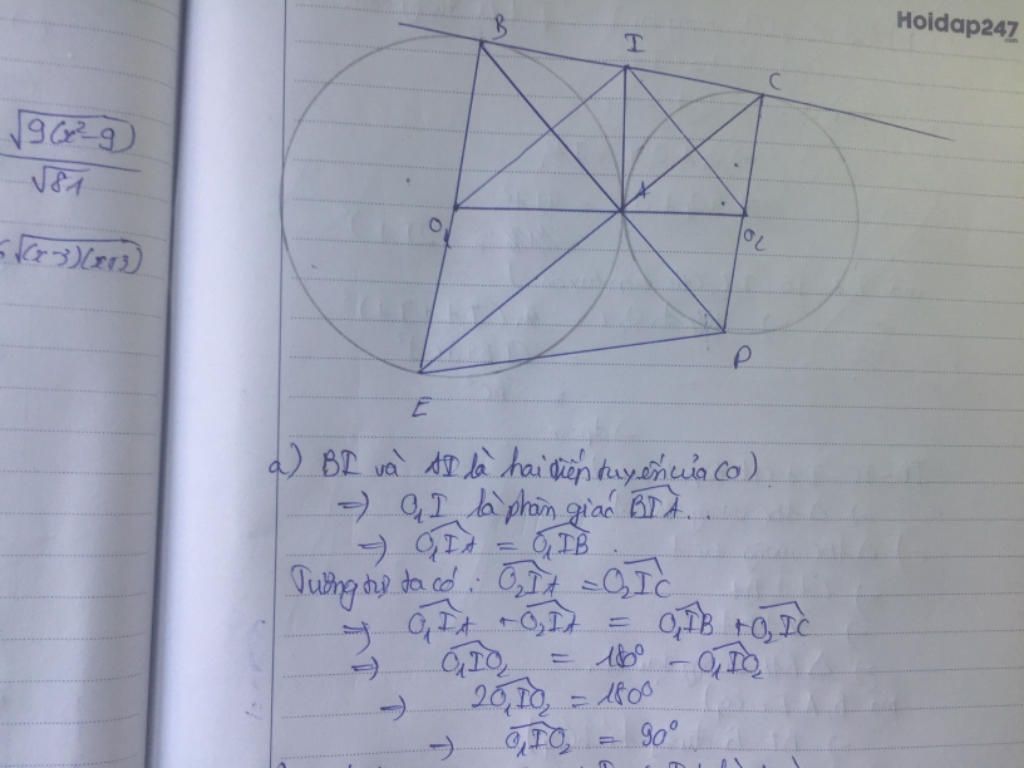 Hoidap247
B
I
C
√9(x²-9)
√81
A
O₁
O₂
√(x-3)(x+3)
D
E
a) BI và AI là hai tiếp tuyến của (O)
=) O₁I là phân giác BIA.
=) O₁IA = O₁IB.
Tương tự ta có: O₂IA = O₂IC
=) O₁IA + O₂IA = O₁IB + O₂IC
=) O₁IO₂ = 180° - O₁IO₂
=) 2O₁IO₂ = 180°
=) O₁IO₂ = 90°